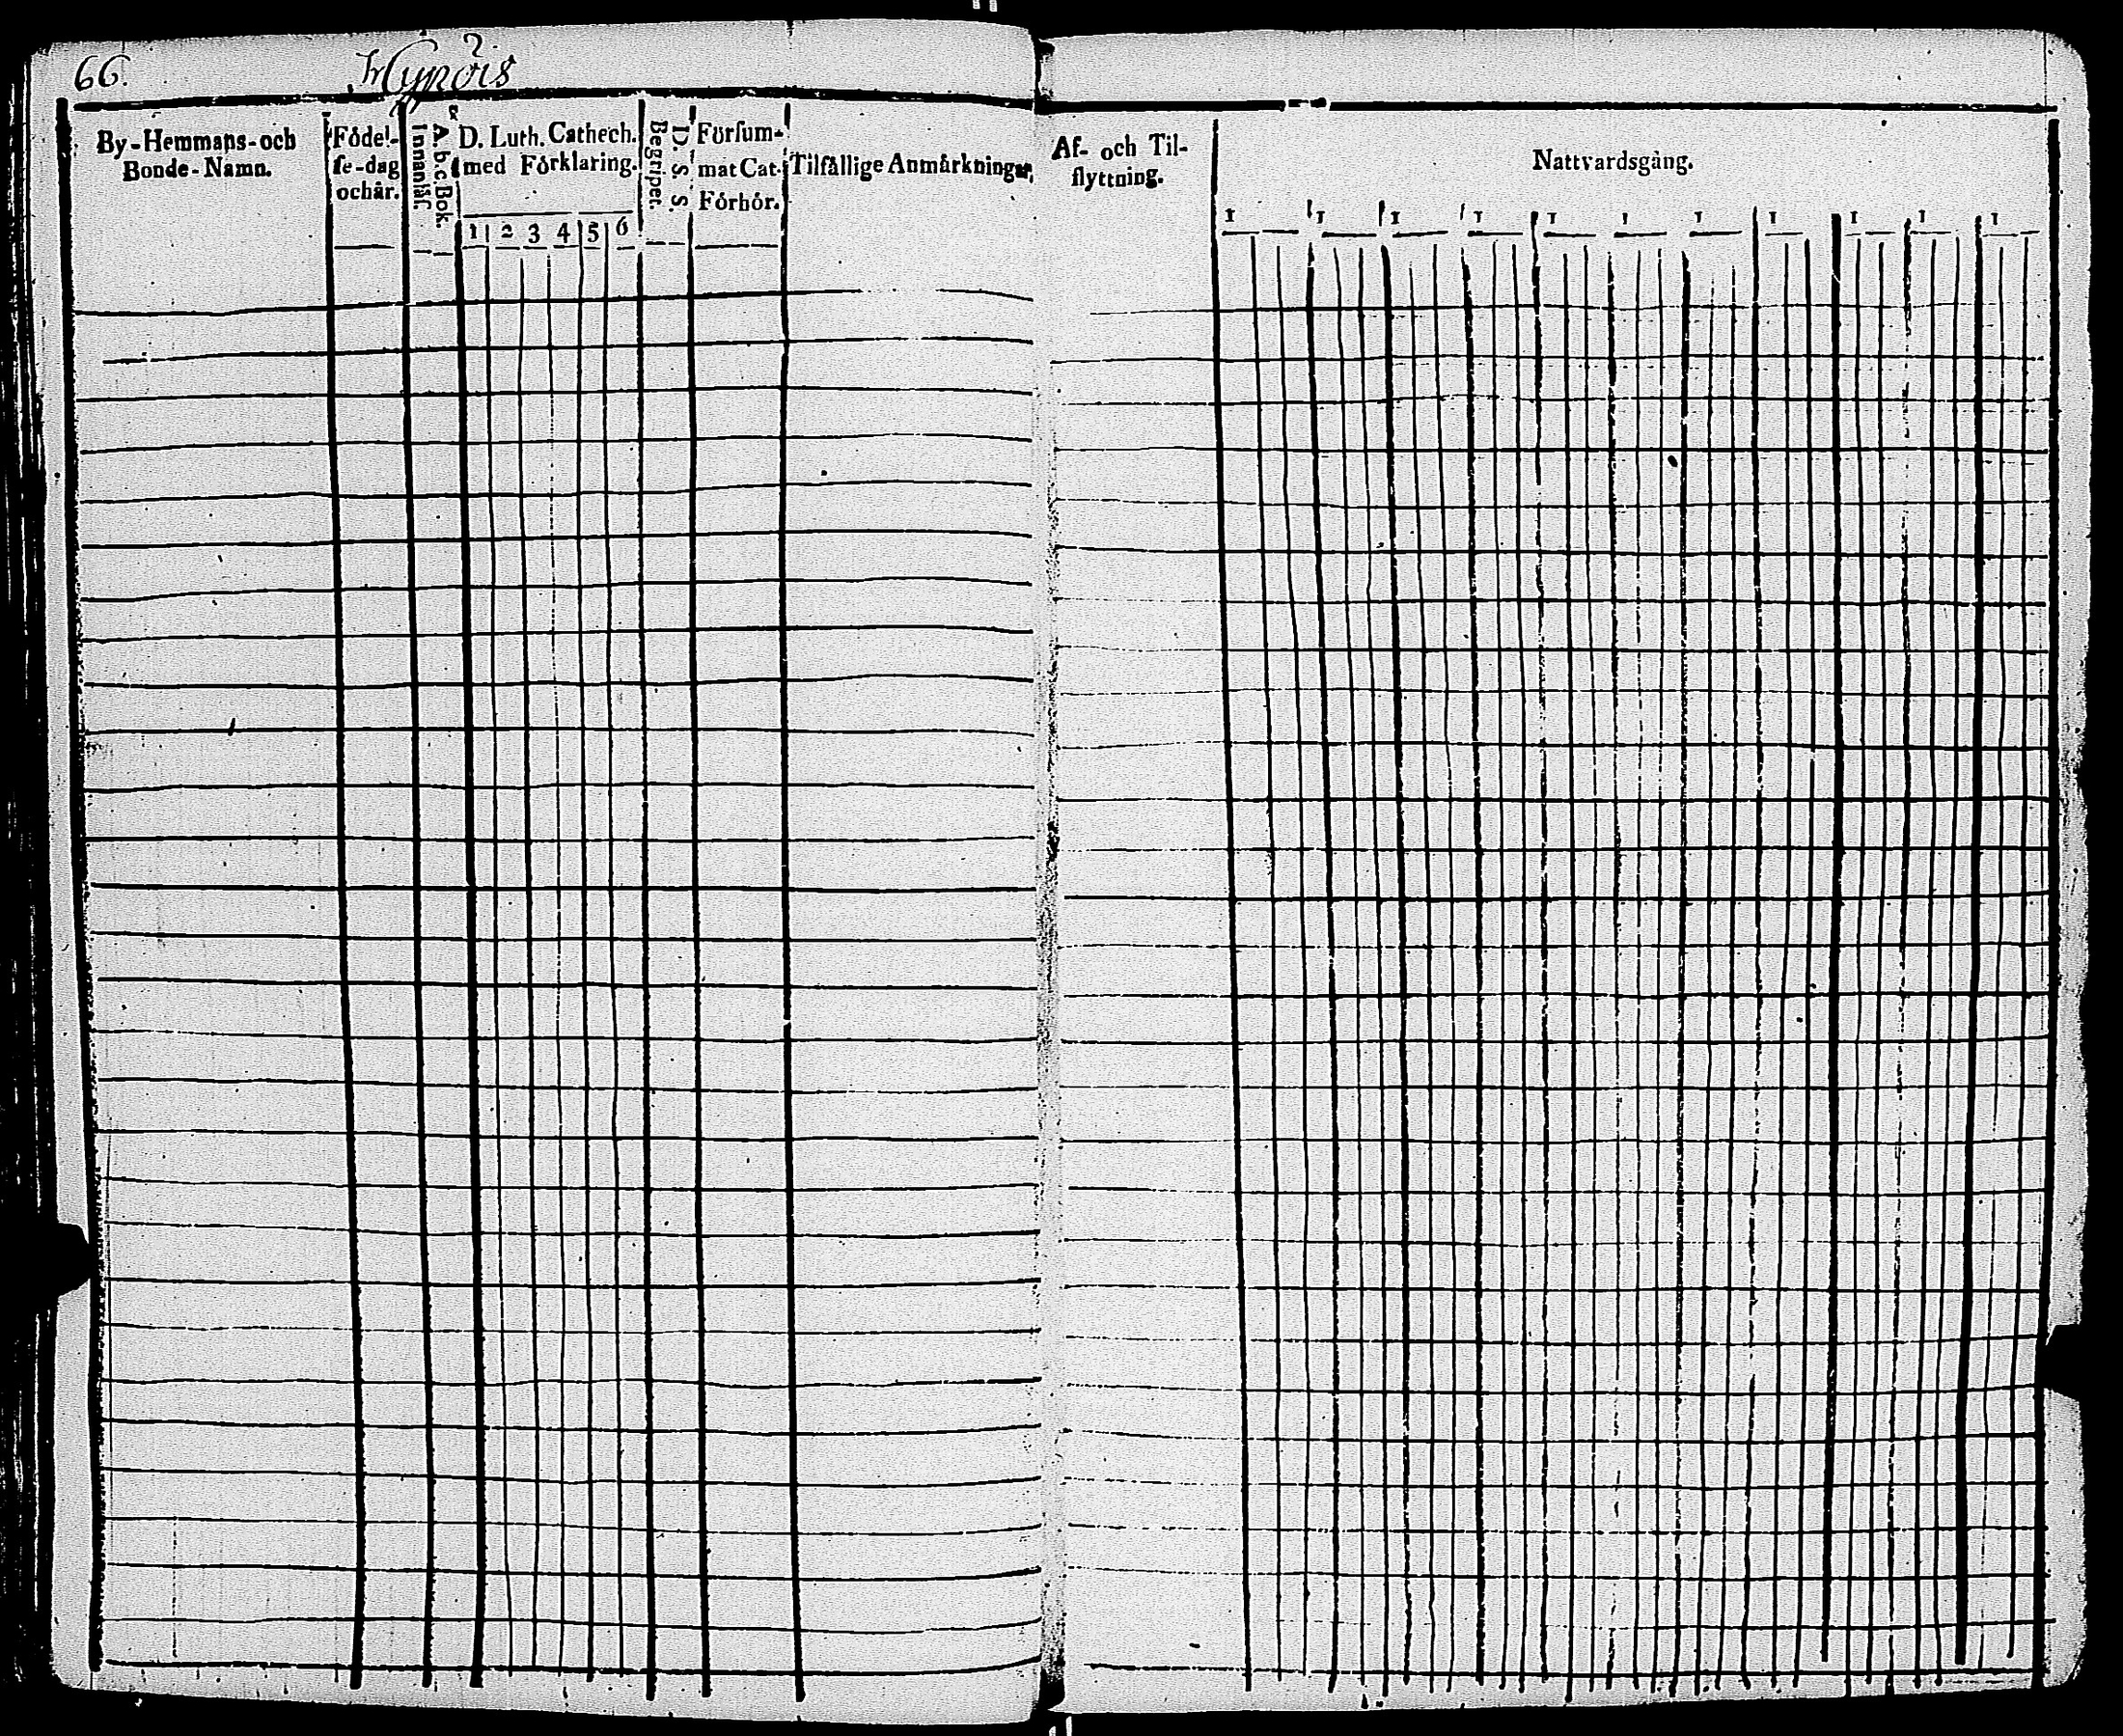 66.
By-Hemmans- och
Bonde-Namn.
Födel-
ſe-dag
och år.
A. b. c. Bok.
Innanläſ.
D. Luth. Cathech.
med Förklaring.
1 2 3 4 5 6
D. S. S.
Begripet.
Förſum-
mat Cat.
Förhör.
Tilfällige Anmärkningar.
Af- och Til-
flyttning.
Nattvardsgång.
1 1 1 1 1 1 1 1 1 1 1